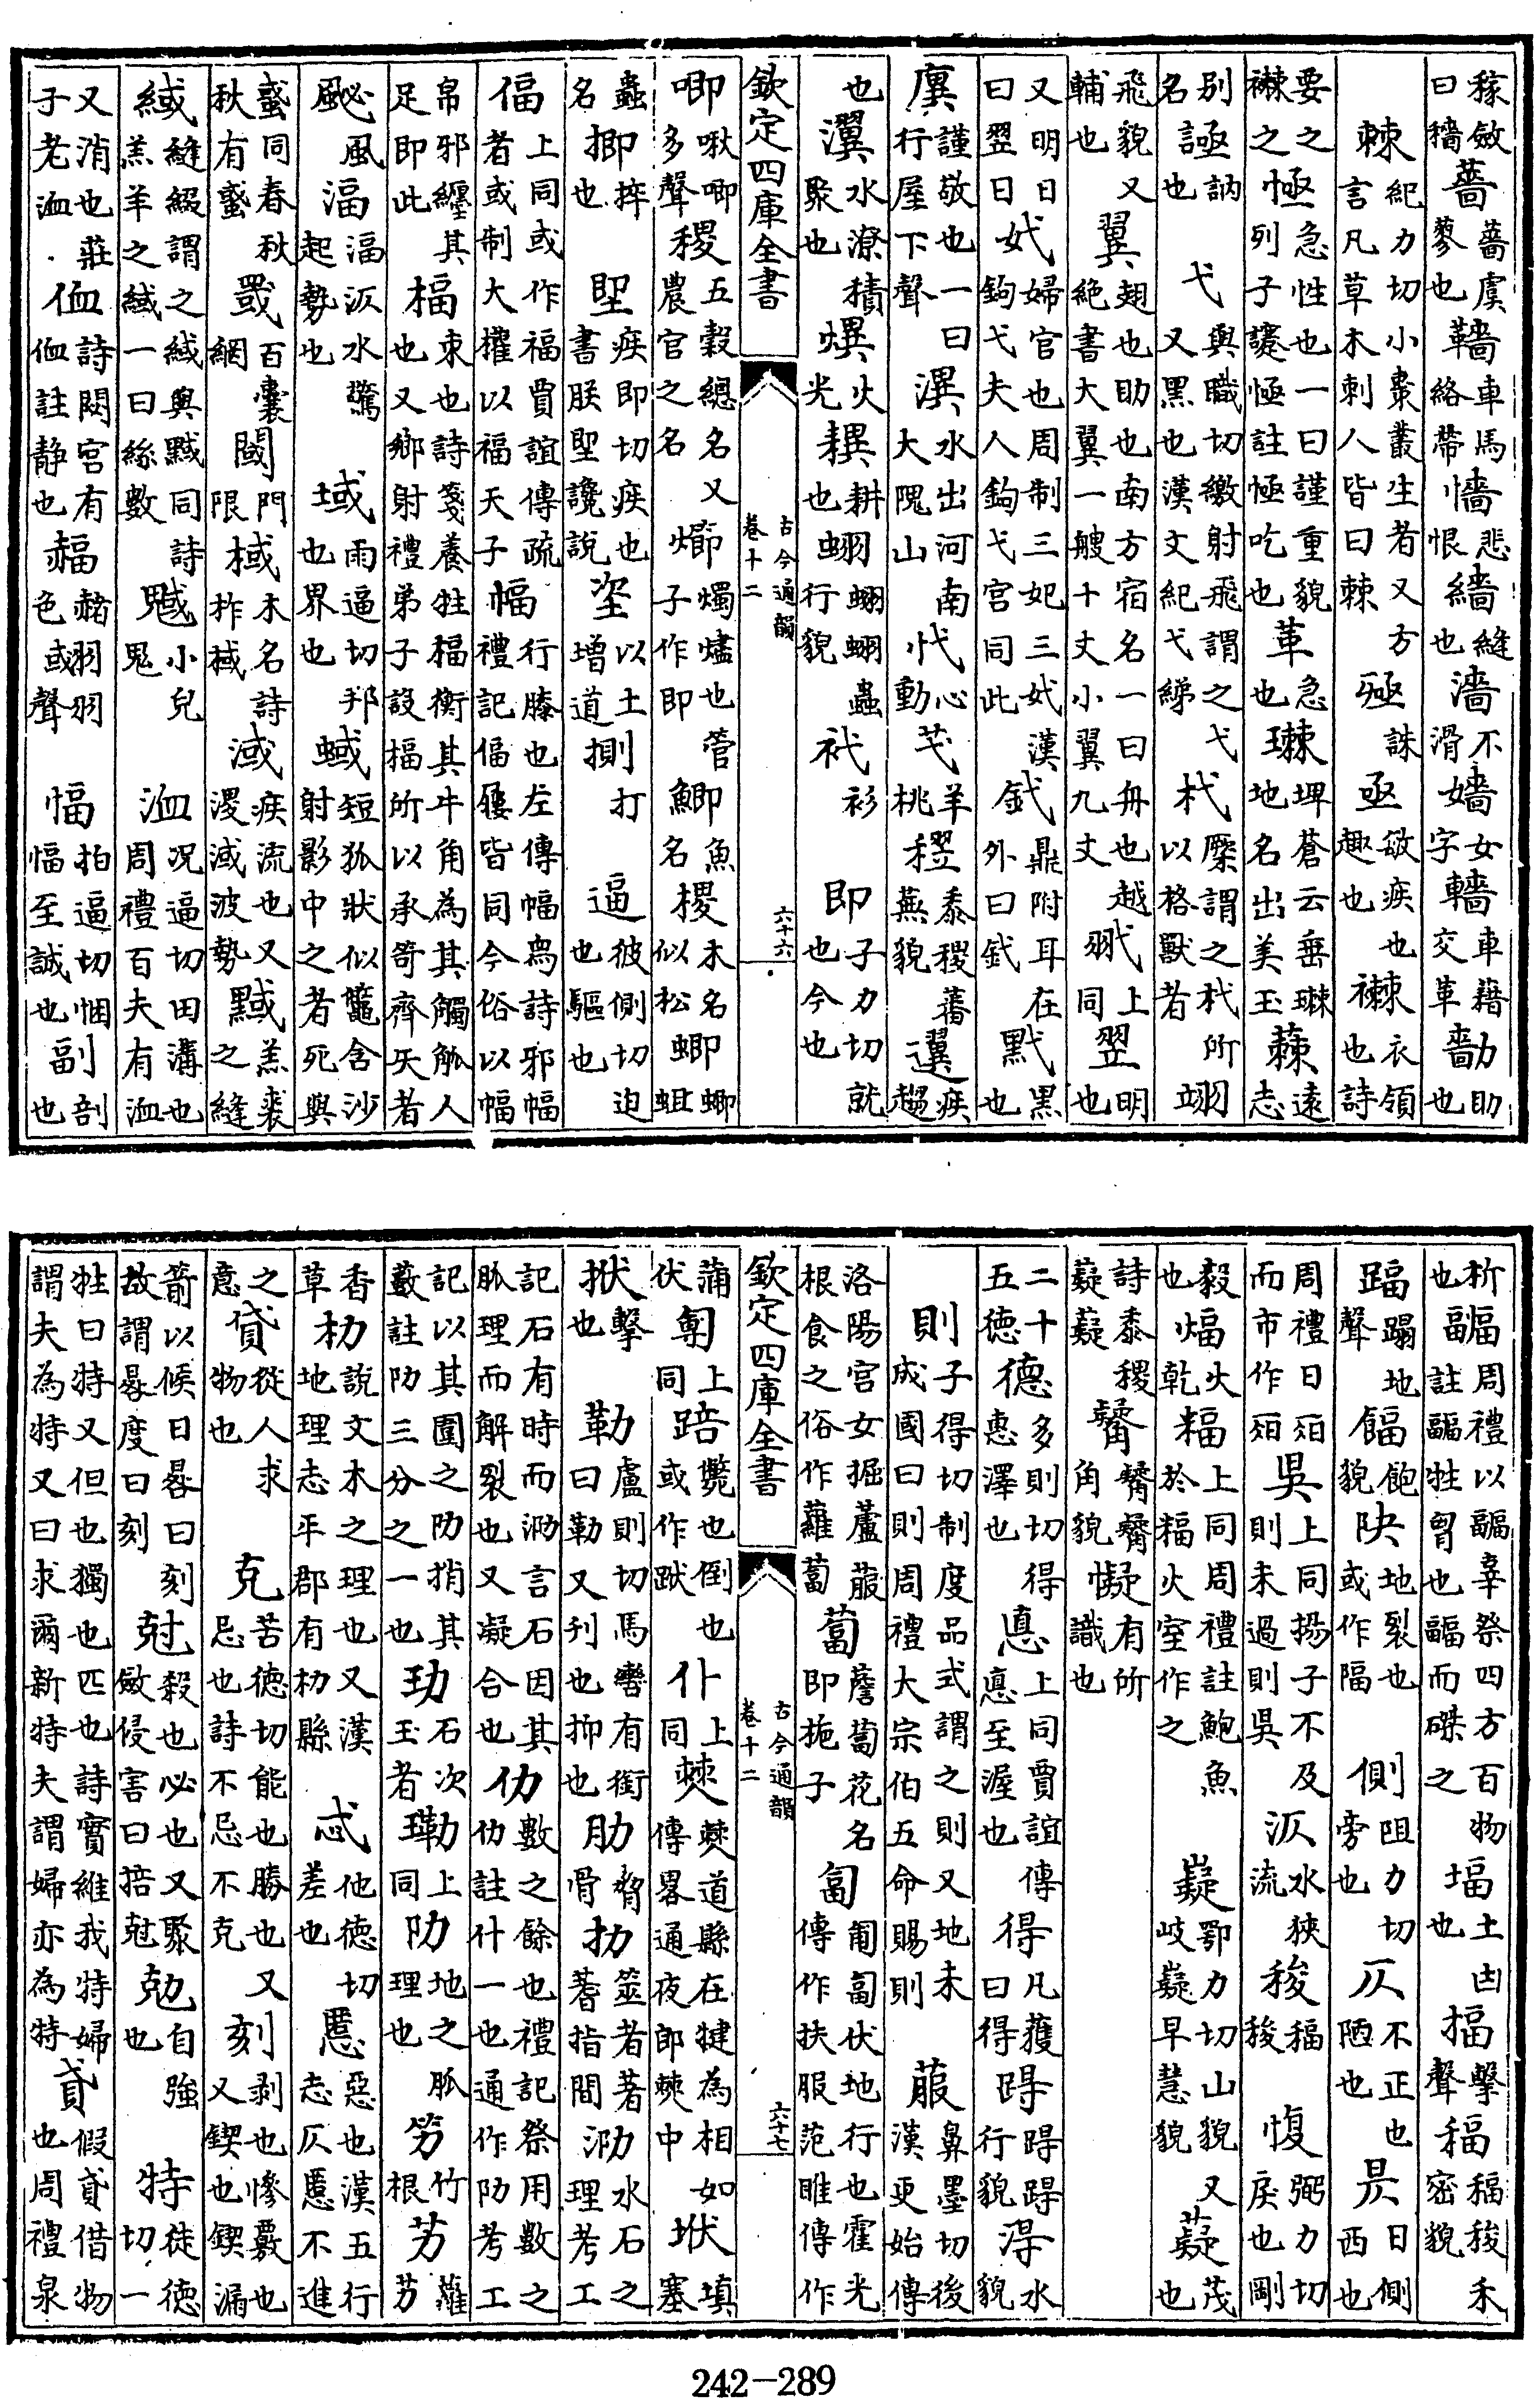 稼斂曰穡薔薔虞蓼也轖車馬絡帶懎悲恨繬縫也濇不滑嬙女字轖車藉交革嗇力助也
棘紀力切小棗叢生者又方言凡草木刺人皆曰棘殛誅亟敏疾也趣也襋衣領也詩
要之襋之悈急性也一曰謹重貌列子讓悈註悈吃也革急也㻷埤蒼云垂㻷地名出美玉蕀遠志
别名諽訥也弋與職切繳射飛謂之弋又黑也漢文紀弋綈杙檿謂之杙所以格獸者翊
飛貌又輔也翼翅也助也南方宿名一曰舟也越絶書大翼一艘十丈小翼九丈翐上同翌明也
又明日曰翌日妷婦官也周制三妃三妷漢鉤弋夫人鉤弋宫同此釴鼎附耳在外曰釴黓黑也
廙謹敬也一曰行屋下聲潩水出河南大隗山忕心動芅羊桃稷黍稷蕃蕪貌趩疾趨
也瀷水潦積聚也熼火光䆩耕也蝴蝴蝴蟲行貌袱衫即子力切就也今也
欽定四庫全書 古今通韻 卷十二 六十六
唧啾唧多聲稷五穀總名又農官之名㘍燭燼也管子作即鯽魚名㮨木名似松蝍蝍蛆
蟲名揤捽也堲疾即切疾也書朕堲讒說垐以土增道揤打逼彼側切迫也驅也
偪上同或作福賈誼傳疏者或制大權以福天子幅行縢也左傳幅舄詩邪幅禮記偪屨皆同今俗以幅
帛邪纏其足即此楅束也詩箋養牲楅衡其牛角為其觸觝人也又鄉射禮弟子設楅所以承笴齊矢者
颮風湢湢汃水驚起勢也域雨逼切邦也界也蜮短狐狀似鼈含沙射影中之者死與
蜮同春秋秋有蜮罭百囊網閾門限棫木名詩柞棫淢疾流也又淢波勢黬羔裘之縫
緎縫綴謂之緎與黬同詩羔羊之緎一曰絲數魊小兒鬼洫况逼切田溝也周禮百夫有洫
又消也莊子老洫侐詩閟宫有侐註静也赩赭羽羽色或聲愊拍逼切悃愊至誠也副剖也
析也疈周禮以疈辜祭四方百物註疈牲胷也疈而磔之堛土凷也揊擊聲稫稫稄禾密貌
踾蹋地聲餾飽貌䦼地裂也或作隔側阻力切旁也仄不正也陋也昃日側西也
周禮日𣅔而市作𣅔吳上同揚子不及則未過則吳汃水狹流稄稫稄愎弼力切戾也剛
毅也煏火乾䊧上同周禮註鮑魚於䊧火室作之嶷鄂力切山貌又岐嶷早慧貌薿茂也
詩黍稷薿薿觺觺觺角貌懝有所識也
二十五德德多則切得惠澤也悳上同賈誼傳悳至渥也得凡獲曰得㝶㝶㝶行貌淂水貌
則子得切制度品式謂之則又地未成國曰則周禮大宗伯五命賜則菔鼻墨切後漢更始傳
洛陽宫女掘蘆菔根食之俗作蘿蔔蔔薝蔔花名即梔子匐匍匐伏地行也霍光傳作扶服范睢傳作
欽定四庫全書 古今通韻 卷十二 六十七
蒲伏匔上同踣斃也倒也或作踣仆上同僰僰道縣在犍為相如傳畧通夜郎僰中垘填塞
㧒擊也勒盧則切馬轡有銜曰勒又刋也抑也肋脅骨扐筮者著蓍指間泐水石之理考工
記石有時而泐言石因其脈理而解裂也又凝合也仂數之餘也禮記祭用數之仂註什一也通作阞考工
記以其圍之阞捎其藪註阞三分之一也玏石次玉者瓎上同阞地之脈理也竻竹根艻蘿艻
香草朸說文木之理也又漢地理志平郡有朸縣忒他德切差也慝惡也漢五行志仄慝不進
之意貸從人求物也克苦德切能也勝也又忌也詩不忌不克刻剥也慘覈也又鍥也鍥漏
箭以候日晷曰刻故謂晷度曰刻尅殺也必也又聚斂侵害曰掊尅勊自強也特徒德切一
牲曰特又但也獨也匹也詩實維我特婦謂夫為特又曰求爾新特夫謂婦亦為特貣假貸借物也周禮泉
242—289